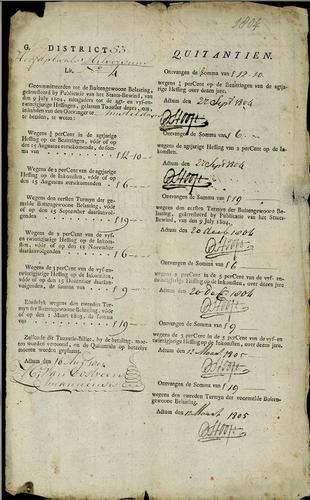 1804
G. DISTRICT 53
Hoofdplaats Hilversum
Lit. No 4
Gecommitteerden tot de Buitengewoone Belasting,
gearresteerd by Publicatie van het Staats-Bewind, van
den 9 July 1804, mitsgaders tot de agt- en vyf-en-
twintigjarige Heffingen, gelasten
om in handen van den Ontvanger te
te betalen, te weten:
Wegens ½ perCent van de agtjarige
Heffing op de Bezittingen, vóór of op
den 15 Augustus eerstkomende, de som-
ma van f 12-10
Wegens 2 per Cent van de agtjarige
Heffing op de Inkomsten, vóór of op
den 15 Augustus eerstkomenden
f 6
Wegens den eersten Termyn der
gemelde Buitengewoone Belasting, vóór of
op den 15 September daaraanvol-
genden f 19
Wegens 2 perCent van de vyf-
entwintigjarige Heffing op de Inkom-
sten, vóór of op den 15 November
daaraanvolgenden f 6
Wegens de 3 perCent van de vyf-en-
twintigjarige Heffing op de Inkomsten,
vóór of op den 15 December daaraan-
volgenden, de somma van
f 9
Eindelyk wegens den tweeden Ter-
myn der gemelde Buitengewoone Belasting, vóór of
op den 1 Maart 1805, de somma van
f 19
Zullende dit Taxatie-Billet, by de betaling, moe-
ten worden vertoond, en de Quitantiën op hetzelve
moeten worden gesteld.
Actum den 10
QUITANTIEN.
Ontvangen de Somma van f 12-10
wegens ½ perCent op de Bezittingen van de agtjarige
Heffing over dezen jare.
Actum den 22 Sept 1804
Ontvangen de Somma van f 6
wegens 2 perCent van de agtjarige Heffing op de In-
komsten.
Actum den 22 Sept 1804
Ontvangen de Somma van f 19
wegens den eersten Termyn der Buitengewoone Be-
lasting, gearresteerd by Publicatie van het Staats-
Bewind, van den 9 July 1804.
Actum den 20 1804
Ontvangen de Somma van f 6
wegens 2 perCent in de 5 perCent van de vyf-en-
twintigjarige Heffing op de Inkomsten, over dezen jare
Actum den 20 1804
Ontvangen de Somma van f 9
wegens de 3 perCent in de 5 perCent van de vyf-en-
twintigjarige Heffing op de Inkomsten, over dezen jare.
Actum den 12 Maart 1805
Ontvangen de Somma van f 19
wegens den tweeden Termyn der voormelde Buiten-
gewoone Belasting.
Actum den 12 Maart 1805